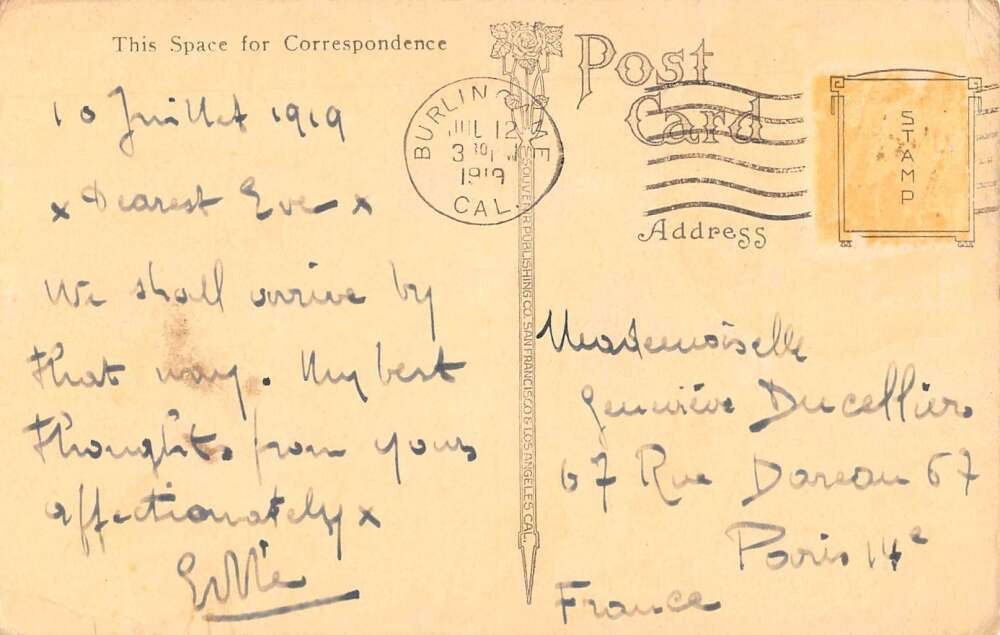 This Space for Correspondence
Post
Card
BURLINGAME
JUL 12
3 30 PM
1919
CAL.
STAMP
Address
SOUVENIR PUBLISHING CO. SAN FRANCISCO & LOS ANGELES CAL.
10 Juillet 1919
x Dearest Eve x
We shall arrive by
that way. My best
thoughts from yours
affectionately x
Mademoiselle
Geneviève Ducellier
67 Rue Dareau 67
Paris 14e
France